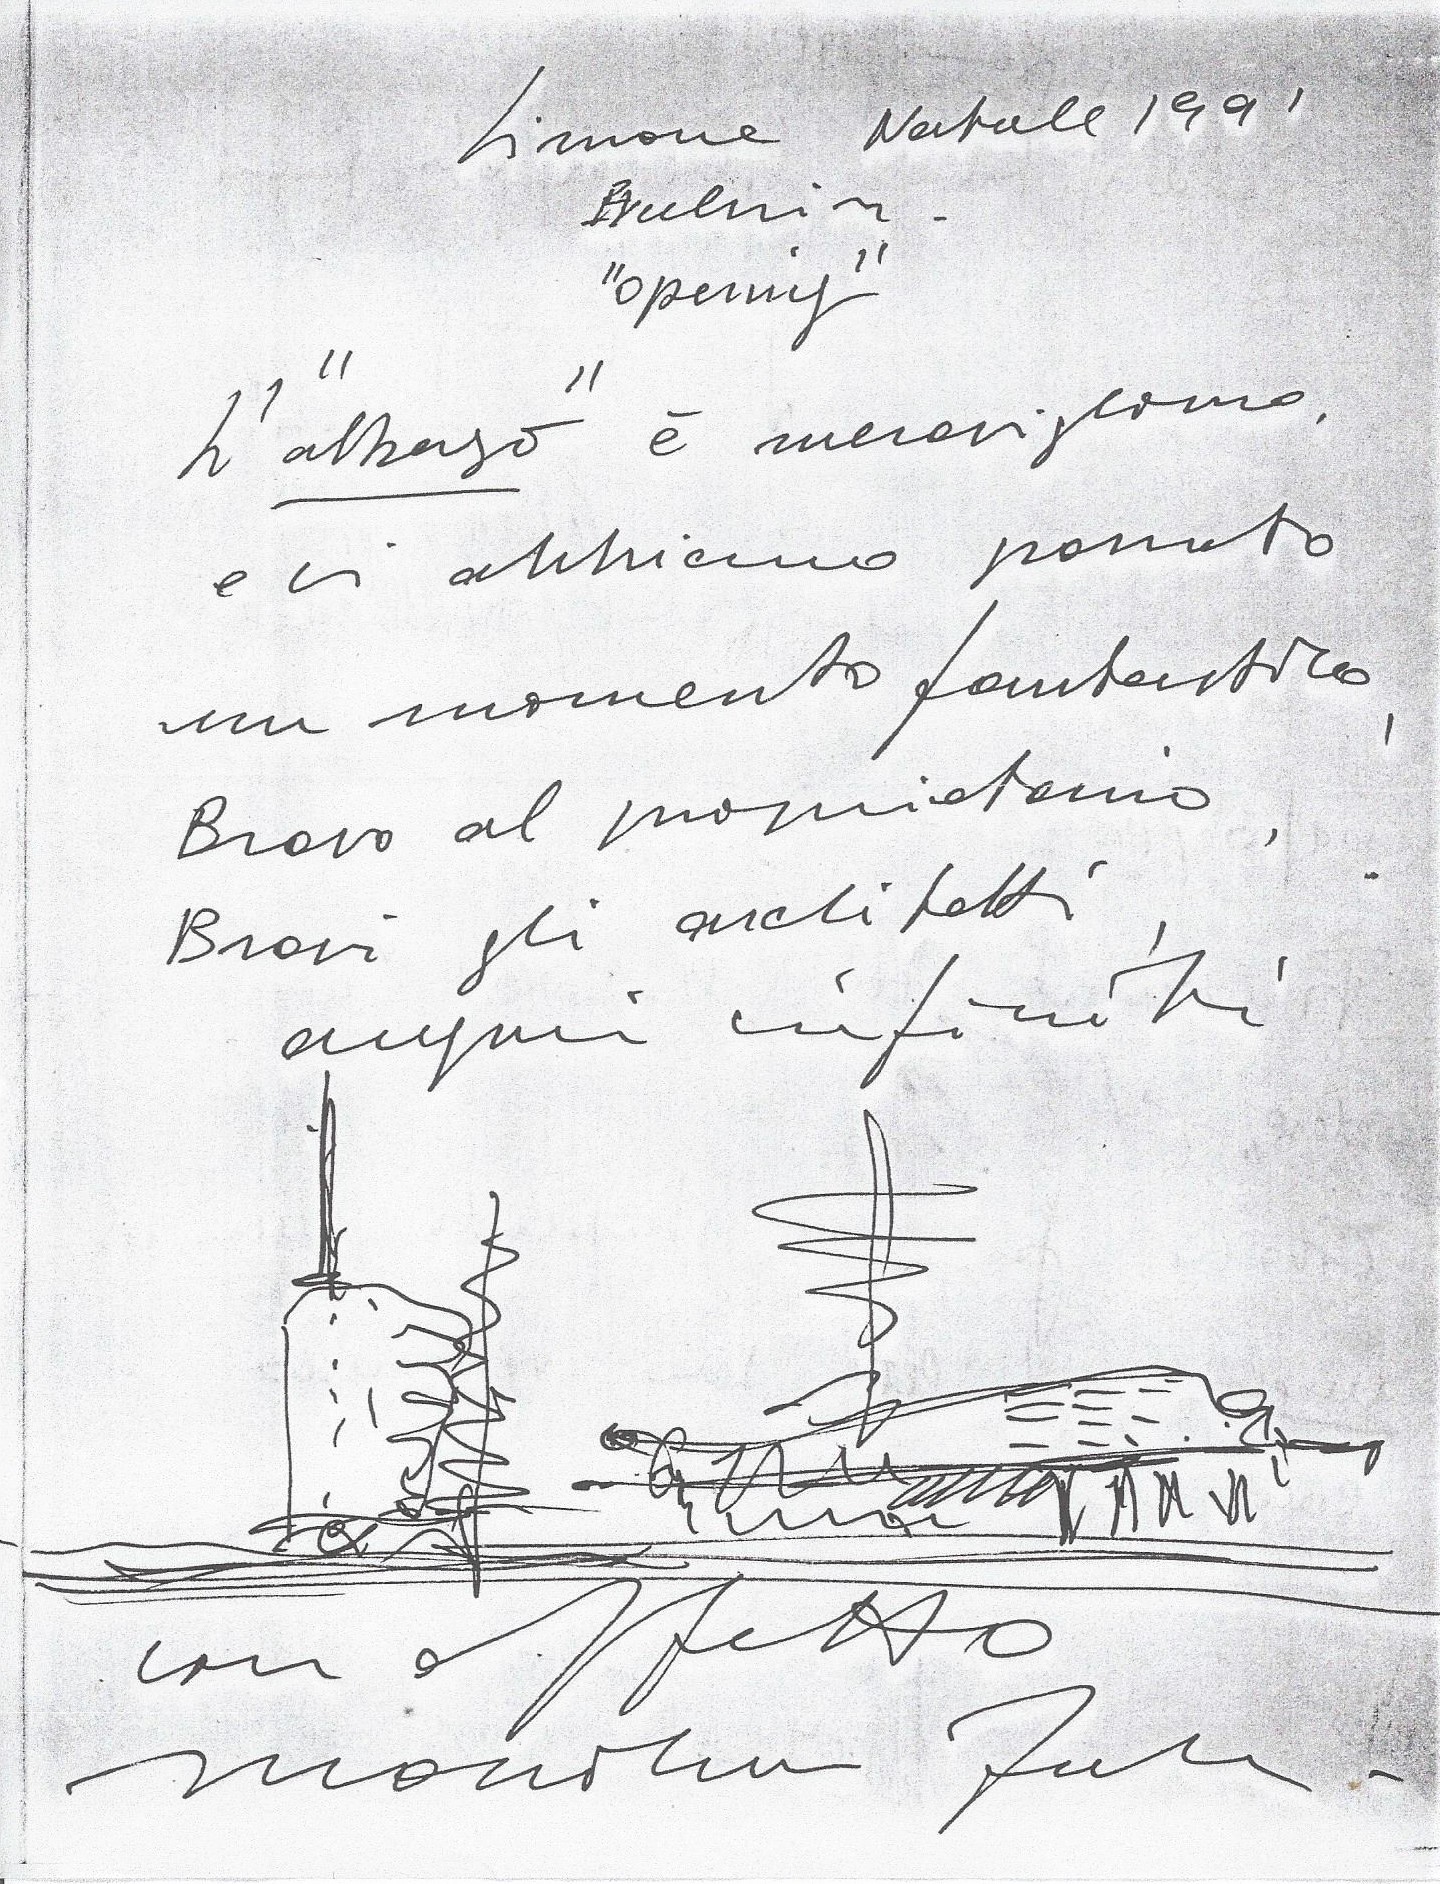 Limone Natale 1991
"opening"
L'"albergo" è meraviglioso,
e ci abbiamo passato
un momento fantastico,
Bravo al proprietario,
Bravi gli architetti,
auguri infiniti
con affetto